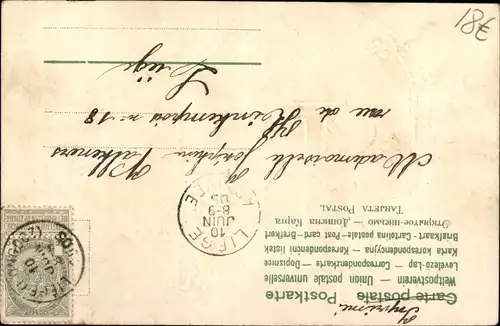 18€
Imprimé
Carte postale Postkarte
Weltpostverein Union postale universelle
Levelezö-Lap — Correspondenzkarte — Dopisnice
Karta korespondencyjna — Korespondenční listek
Briefkaart — Cartolina postale — Post card — Brefkort
Открытое письмо — Дописна Карта
TARJETA POSTAL
LIEGE
10
JUIN
8-9
05
Mademoiselle Joséphine
rue de Kinkempois nº 18
Liége
LIÉGE
10